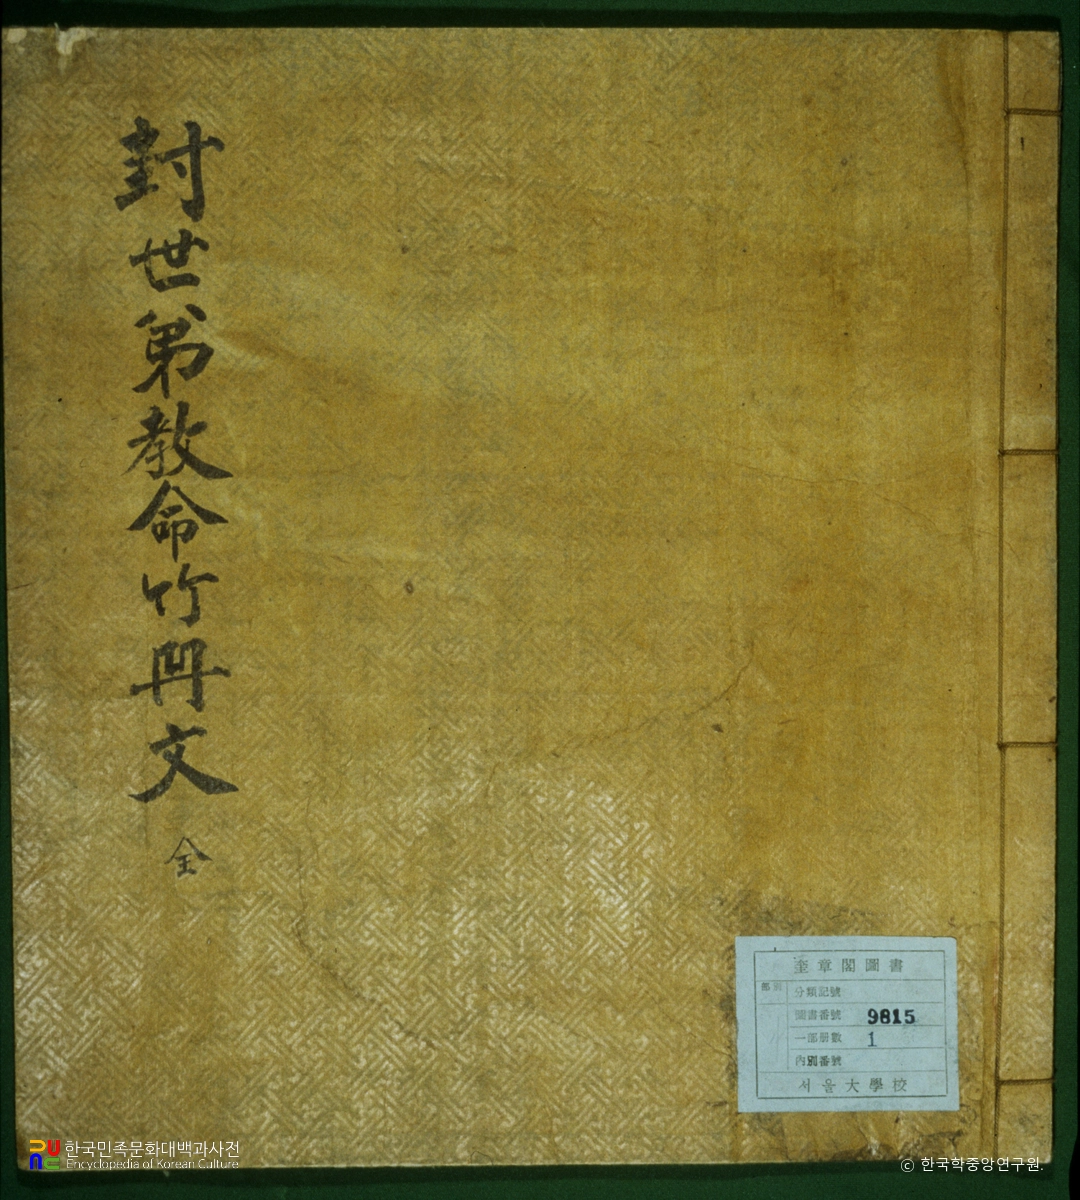 封世弟敎命竹冊文
全
奎章閣圖書
部別
分類記號
圖書番號 9815
一部册數 1
內別番號
서울大學校
한국민족문화대백과사전
Encyclopedia of Korean Culture
© 한국학중앙연구원.